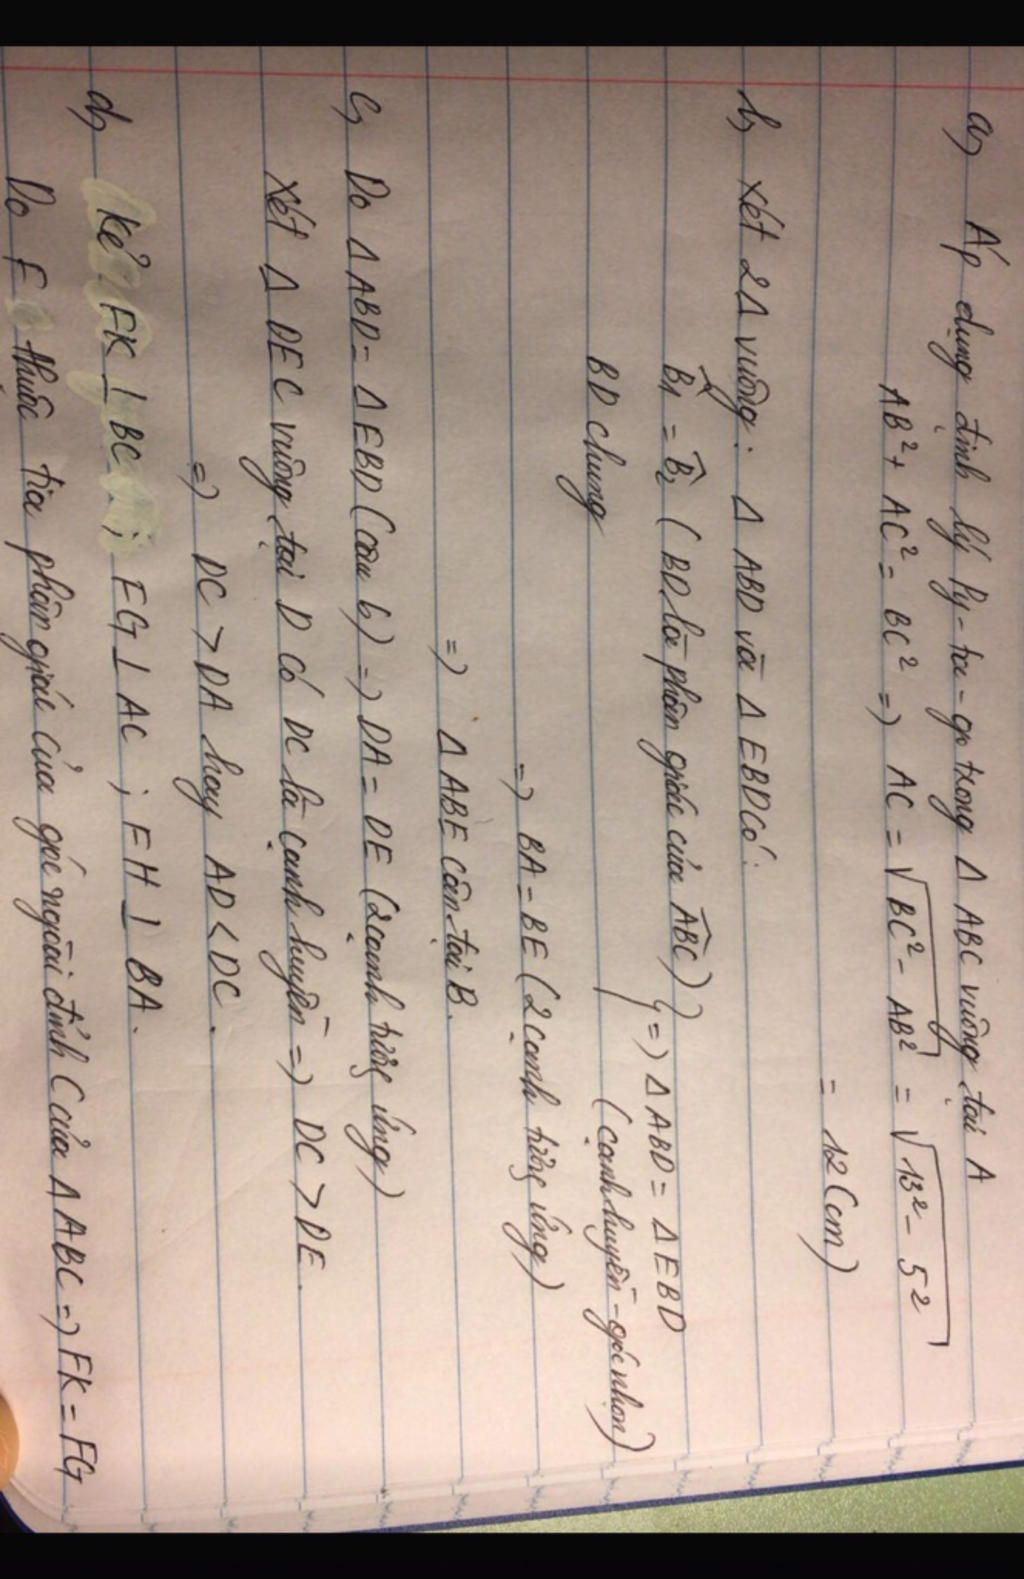 a, Áp dụng định lý Py-ta-go trong Δ ABC vuông tại A
AB² + AC² = BC² => AC = √BC² - AB² = √13² - 5²
= 12 (cm)
b, Xét 2Δ vuông: Δ ABD và Δ EBD có:
B̂1 = B̂2 (BD là phân giác của ABC) } => Δ ABD = Δ EBD
BD chung (cạnh huyền - góc nhọn)
=> BA = BE (2 cạnh tương ứng)
=> Δ ABE cân tại B.
c, Do Δ ABD = Δ EBD (câu b) => DA = DE (2 cạnh tương ứng)
Xét Δ DEC vuông tại D có DC là cạnh huyền => DC > DE.
=> DC > DA hay AD < DC.
d, Kẻ FK ⊥ BC ; FG ⊥ AC ; FH ⊥ BA.
Do F thuộc tia phân giác của góc ngoài đỉnh C của Δ ABC => FK = FG